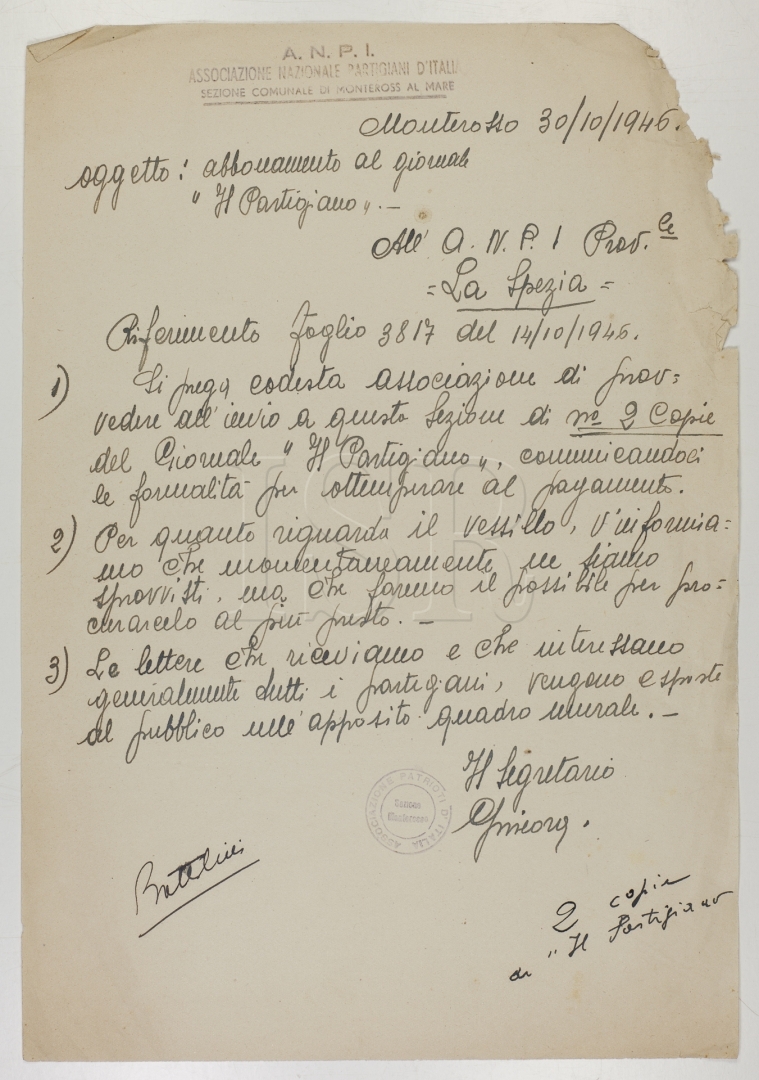 A. N. P. I.
ASSOCIAZIONE NAZIONALE PARTIGIANI D'ITALIA
SEZIONE COMUNALE DI MONTEROSS AL MARE
Monterosso 30/10/1946.
oggetto: abbonamento al giornale
"Il Partigiano„. —
All' A. N. P. I Prov.le
= La Spezia =
Riferimento foglio 3817 del 14/10/1946.
1) Si prega codesta associazione di prov=
vedere all'invio a questa Sezione di no 2 Copie
del Giornale "Il Partigiano„, communicandoci
le formalità per ottemperare al pagamento.
2) Per quanto riguarda il vessillo, v'informia=
mo che momentaneamente ne siamo
sprovvisti, ma che faremo il possibile per pro=
curarcelo al più presto. —
3) Le lettere che riceviamo e che interessano
generalmente tutti i partigiani, vengono esposte
al pubblico nell'apposito quadro murale. —
Il Segretario
ASSOCIAZIONE PATRIOTI D'ITALIA
Sezione
Monterosso
2 copie
di "Il Partigiano
ISR